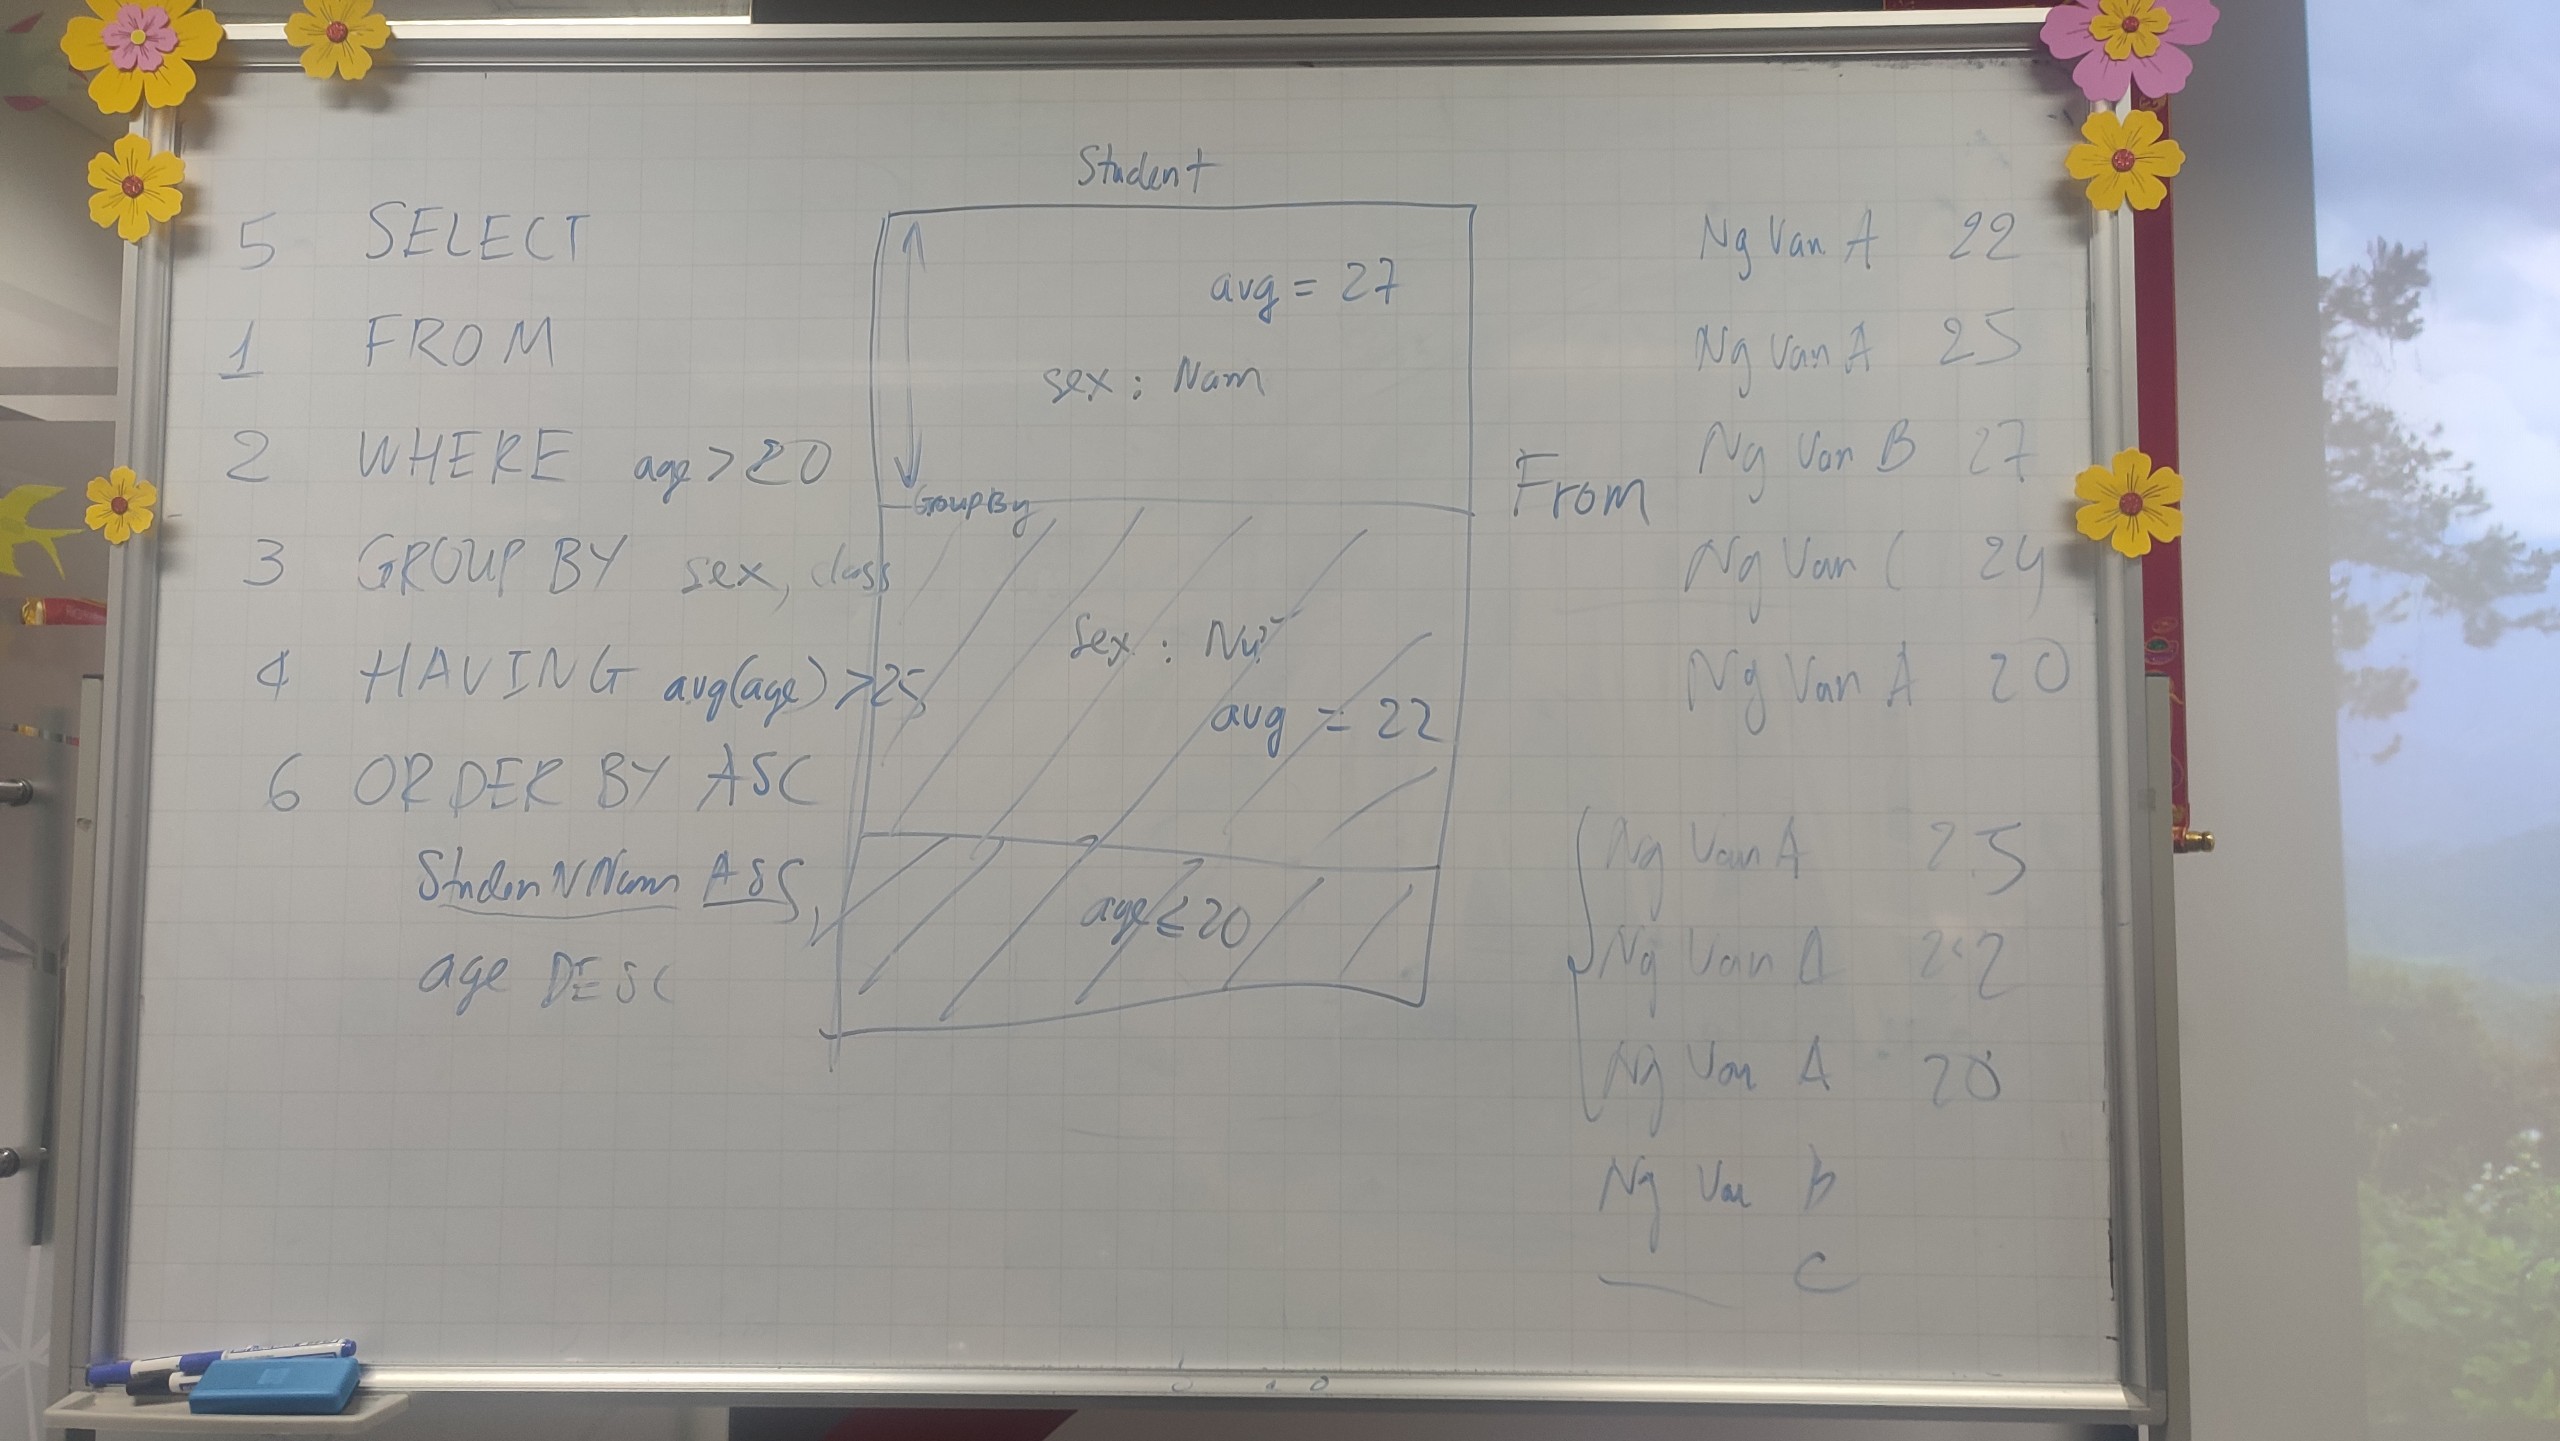 5 SELECT
1 FROM
2 WHERE age > 20
3 GROUP BY sex, class
4 HAVING avg(age) > 25
6 ORDER BY ASC
age DESC
Student
avg = 27
sex : Nam
Group By
sex : Nữ
avg = 22
age ≤ 20
From
Ng Van A 22
Ng Van A 25
Ng Van B 27
Ng Van C 24
Ng Van A 20
Ng Van A 25
Ng Van A 22
Ng Van A 20
Ng Van B
C